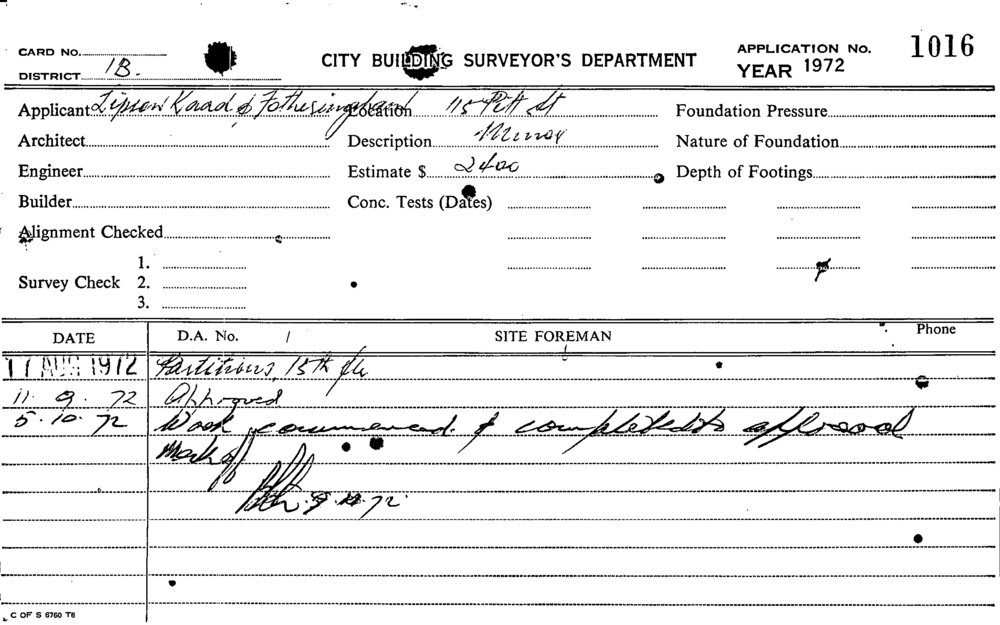 CARD No.
DISTRICT 1B.
CITY BUILDING SURVEYOR'S DEPARTMENT
APPLICATION No. 1016
YEAR 1972
Applicant Lipson Kaad & Fotheringham
Location 115 Pitt St
Foundation Pressure
Architect
Description Minor
Nature of Foundation
Engineer
Estimate $ 2400
Depth of Footings
Builder
Conc. Tests (Dates)
Alignment Checked
Survey Check 1.
2.
3.
DATE D.A. No. / SITE FOREMAN Phone
17 AUG 1972 Partitions, 15th flr
11. 9. 72 Approved
5. 10. 72 Work commenced & completed to approval
Mark off
72
C OF S 6760 T6